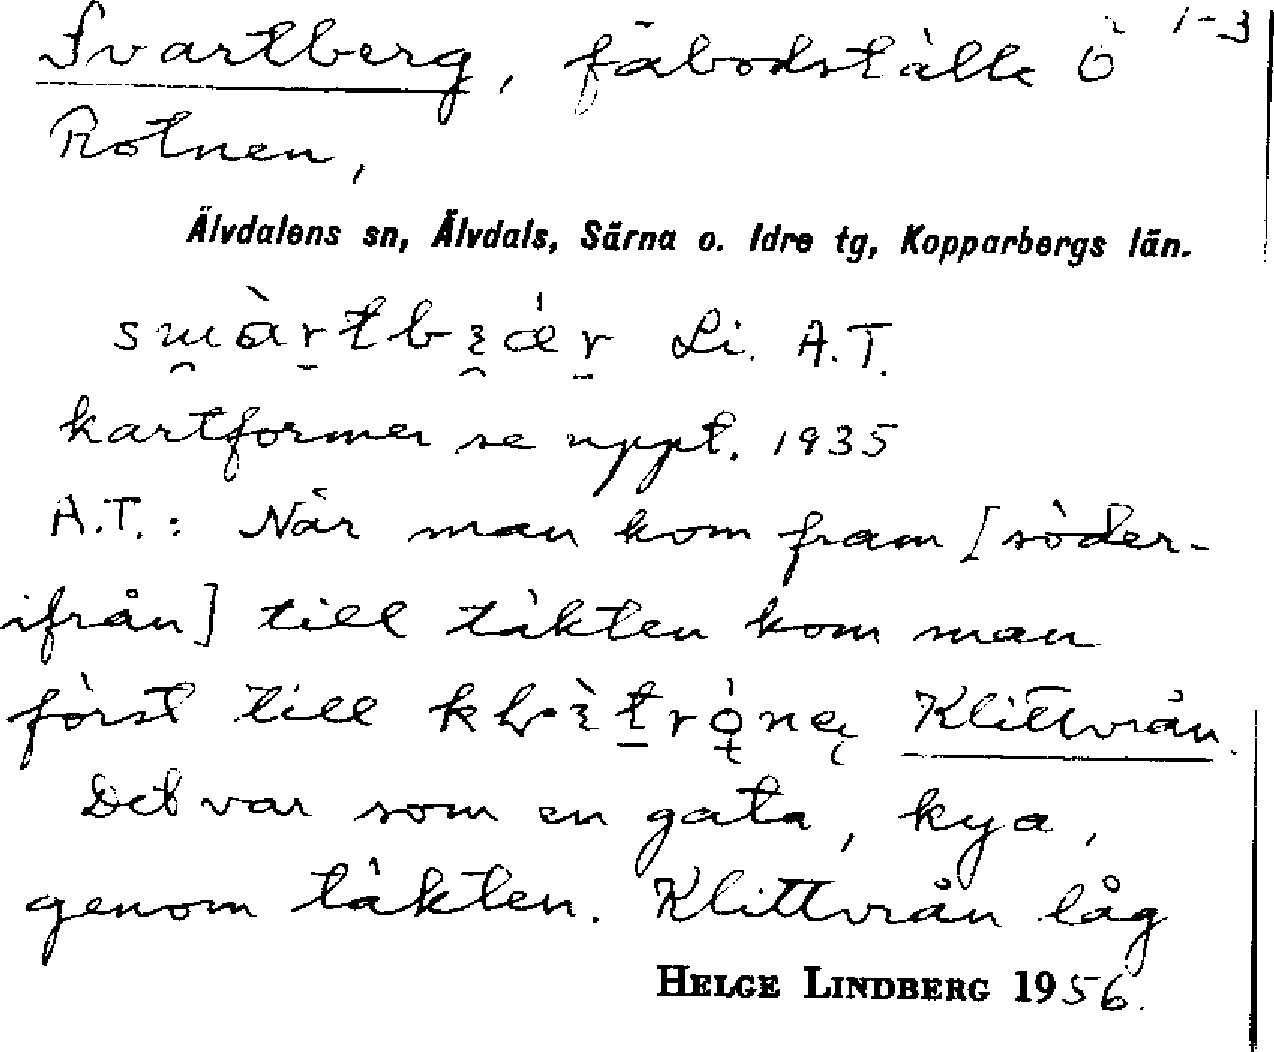 Svartberg, fäbodställe ö 1-3
Rotnen,
Älvdalens sn, Älvdals, Särna o. Idre tg, Kopparbergs län.
Li. A.T.
kartformer se uppt. 1935
A.T.: När man kom fram [söder-
ifrån] till täkten kom man
först till Klittvrån.
Det var som en gata, kya,
genom täkten. Klittvrån låg
HELGE LINDBERG 1956.